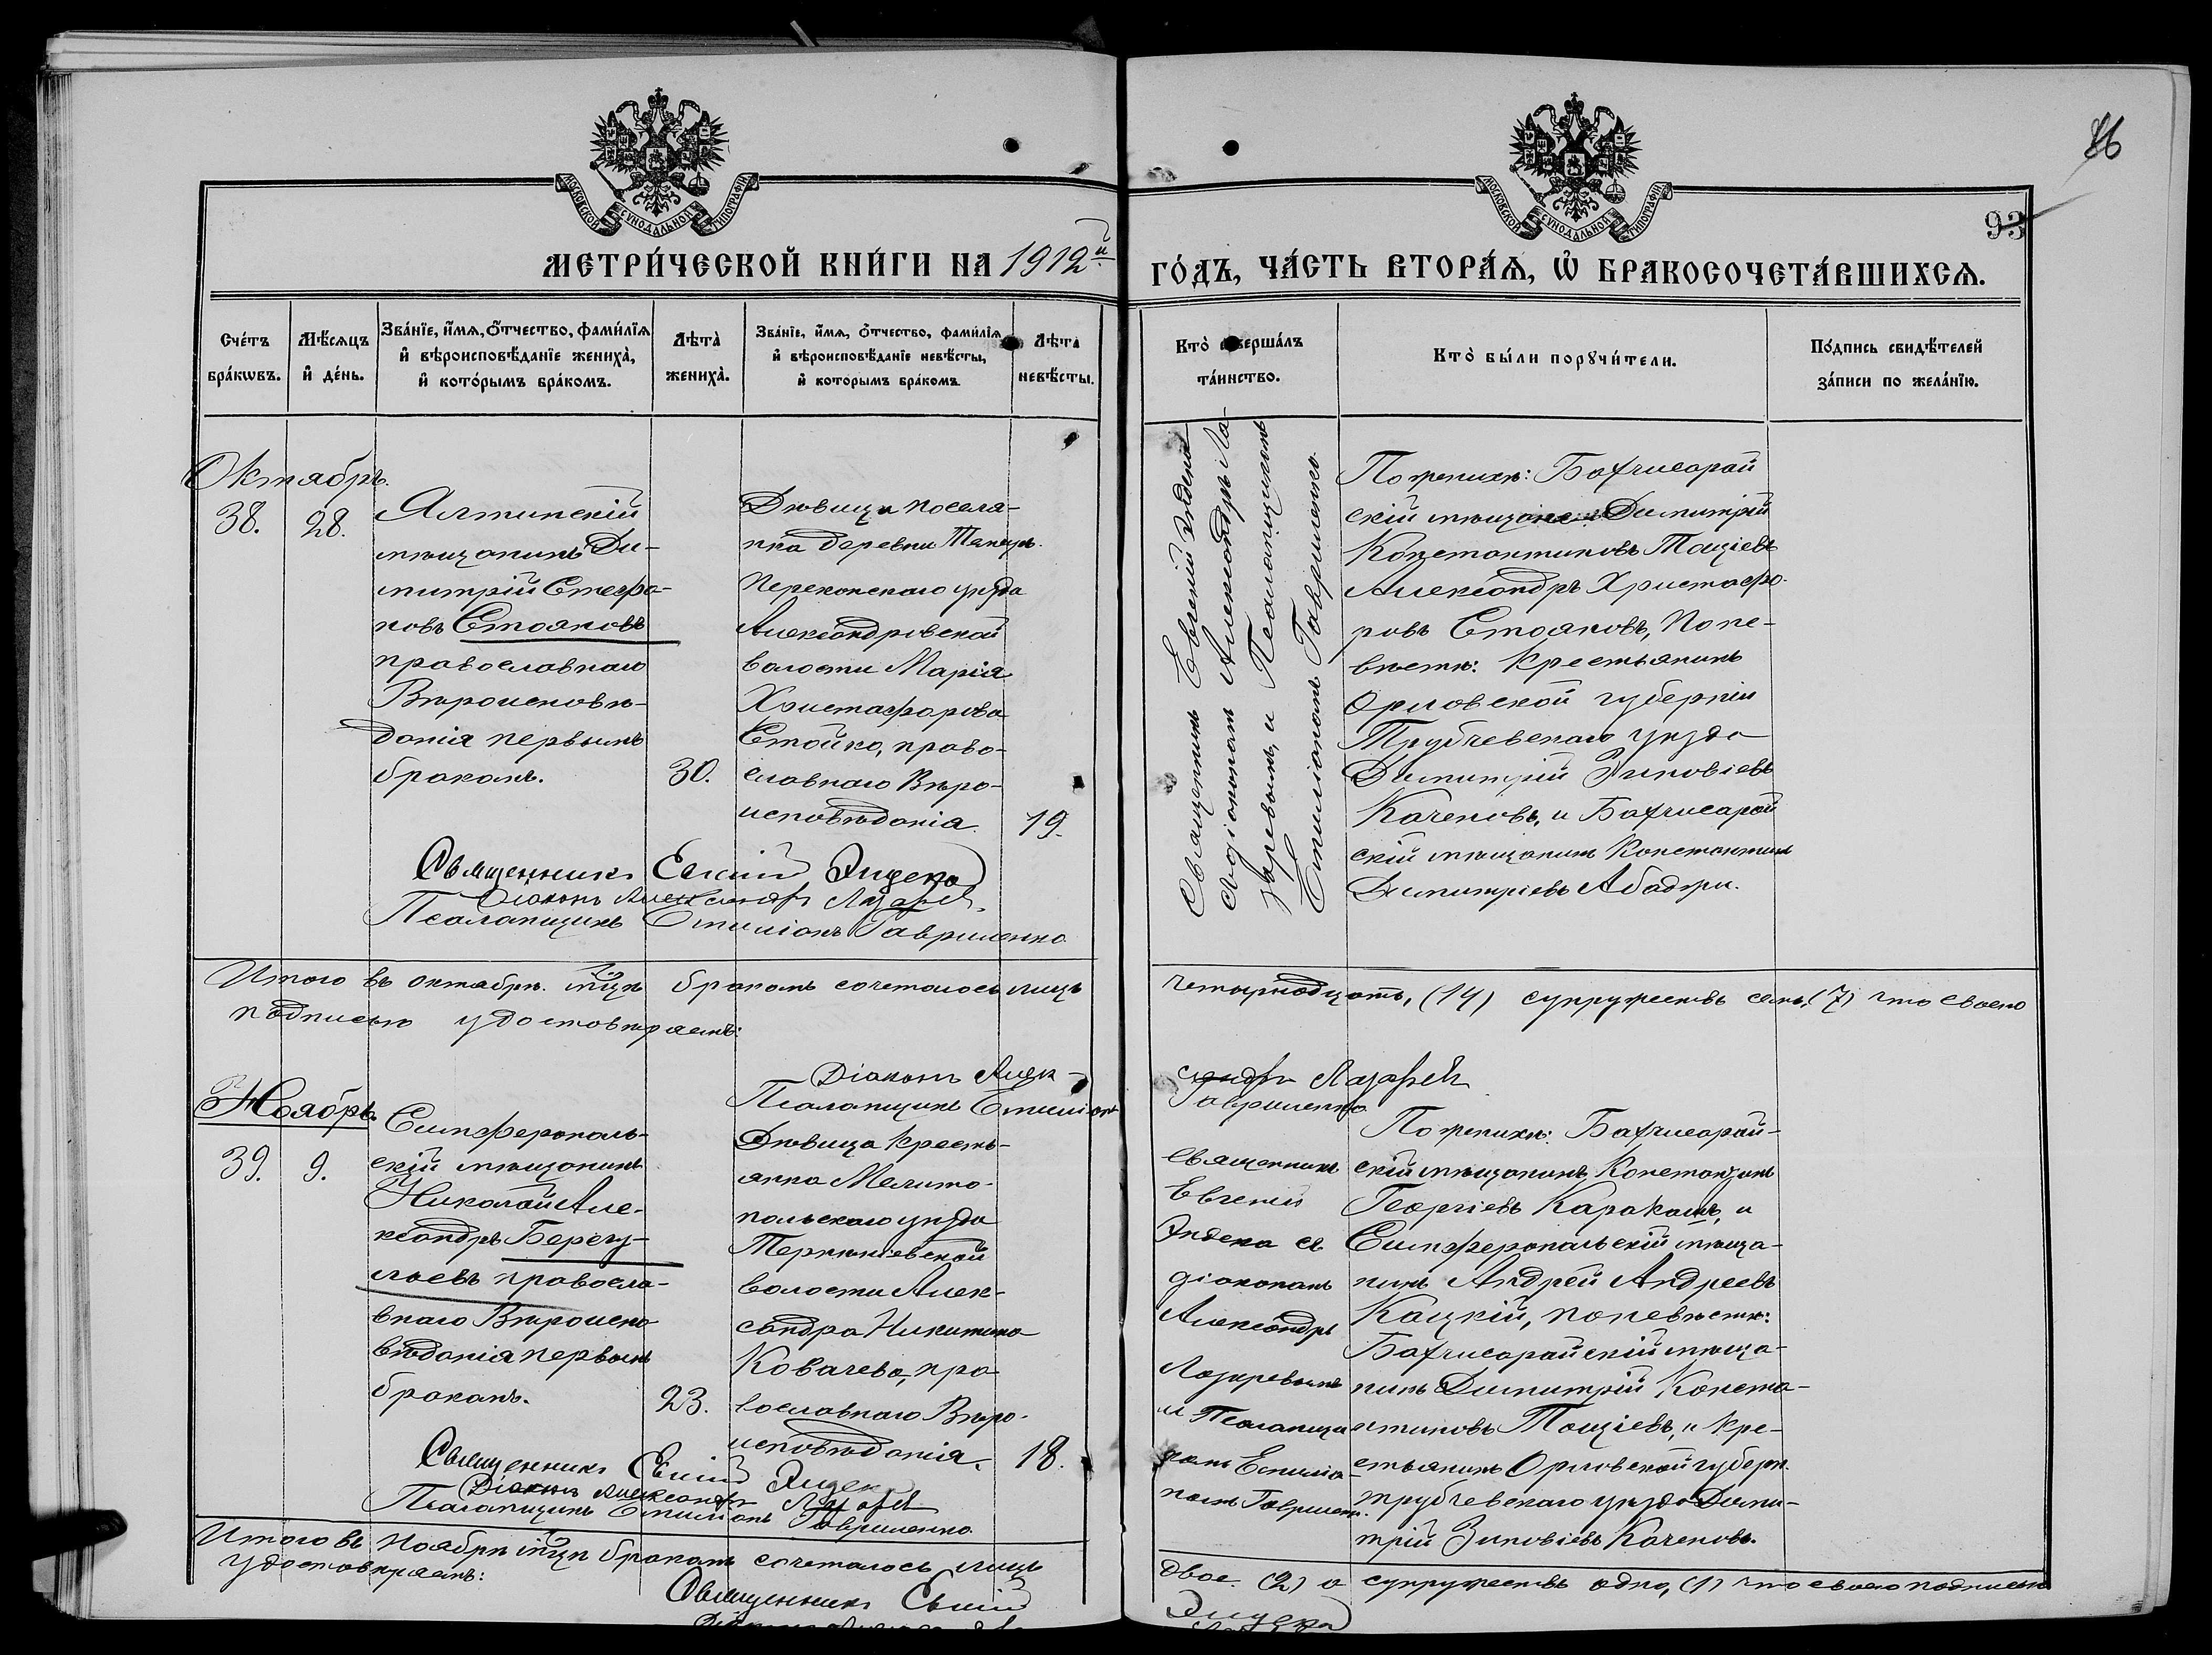 86
93
МОСКОВСКОЙ СУНОДАЛЬНОЙ ТИПОГРАФІИ
МОСКОВСКОЙ СУНОДАЛЬНОЙ ТИПОГРАФІИ
МЕТРИ́ЧЕСКОЙ КНИ́ГИ НА 1912й
ГО́ДЪ, ЧА́СТЬ ВТОРА́Ѧ, Ѽ БРАКОСОЧЕТА́ВШИХСѦ.
Сче́тъ
бра́кωвъ.
Мѣ́сѧцъ
и҆ де́нь.
Зва́нїе, и҆́мѧ, ѻ҆́тчество, фами́лїѧ
и҆ вѣроисповѣ́данїе жениха̀,
и҆ кото́рымъ бра́комъ.
Лѣта̀
жениха̀.
Зва́нїе, и҆́мѧ, ѻ҆́тчество, фами́лїѧ
и҆ вѣроисповѣ́данїе невѣ́сты,
и҆ которымъ бра́комъ
Лѣта̀
невѣ́сты.
Кто̀ совершáлъ
та́инство.
Кто̀ бы́ли порꙋчи́тели.
По́дпись свидѣ́телей
за́писи по жела́нїю.
Октябрь.
38.
28.
Ялтинскій
мѣщанинъ Ди-
митрій Стефа-
новъ Стояновъ
православнаго
Вѣроисповѣ-
данія первымъ
бракомъ.
30.
Дѣвица поселя-
нка деревни
Перекопскаго уѣзда
Александровской
волости Марія
Христофорова
Стойко, право-
славнаго Вѣро-
исповѣданія.
19.
Священникъ Евгеній Эндека
съ діакономъ Александръ Ла-
заревымъ, и Псаломщикомъ
Стиліаномъ Гавриленко
По женихѣ: Бахчисарай
скій мѣщанинъ Димитрій
Константиновъ Тощіевъ
Александръ Христофо-
ровъ Стояновъ, По не-
вѣстѣ: Крестьянинъ
Орловской губерніи
Трубчевскаго уѣзда
Димитрій Зиновіевъ
Каченовъ, и Бахчисарай
скій мѣщанинъ Константинъ
Димитріевъ Абаджи.
Священникъ Евгеній Эндека
Діаконъ Александръ Лазаревъ
Псаломщикъ Стиліанъ Гавриленко
Итого въ октябрѣ мцѣ бракомъ сочеталось лицъ четырнадцать, (14) супружествъ семь, (7) что своею
подписью удостовѣряемъ:
Діаконъ Александръ Лазаревъ
Псаломщикъ Стиліанъ Гавриленко
Ноябрь.
39.
9.
Симферополь-
скій мѣщанинъ
Николай Але-
ксандръ Берегу-
льевъ правосла-
внаго Вѣроиспо
вѣданія первымъ
бракомъ.
23.
Дѣвица Кресть-
янка Мелито-
польскаго уѣзда
Терпѣніевской
волости Алек-
сандра Никитина
Ковачева, пра
вославнаго Вѣро-
исповѣданія.
18.
Священникъ
Евгеній
Эндека съ
діакономъ
Александръ
Лазаревымъ
и Псаломщи
комъ Стиліа-
номъ Гавриленк.
По женихѣ: Бахчисарай-
скій мѣщанинъ Константинъ
Георгіевъ Каракашъ, и
Симферопольскій мѣща-
нинъ Андрей Андреевъ
Кацкій, по невѣстѣ:
Бахчисарайскій мѣща-
нинъ Димитрій Конста-
нтиновъ Тощіевъ, и Кре-
стьянинъ Орловской губерн.
трубчевскаго уѣзда Дими-
трій Зиновіевъ Каченовъ.
Священникъ Евгеній Эндека
Діаконъ Александръ Лазаревъ
Псаломщикъ Стиліанъ Гавриленко
Итого въ Ноябрѣ мцѣ бракомъ сочеталось лицъ двое (2) а супружествъ одно, (1) что своею подписью
удостовѣряемъ:
Священникъ Евгеній Эндека